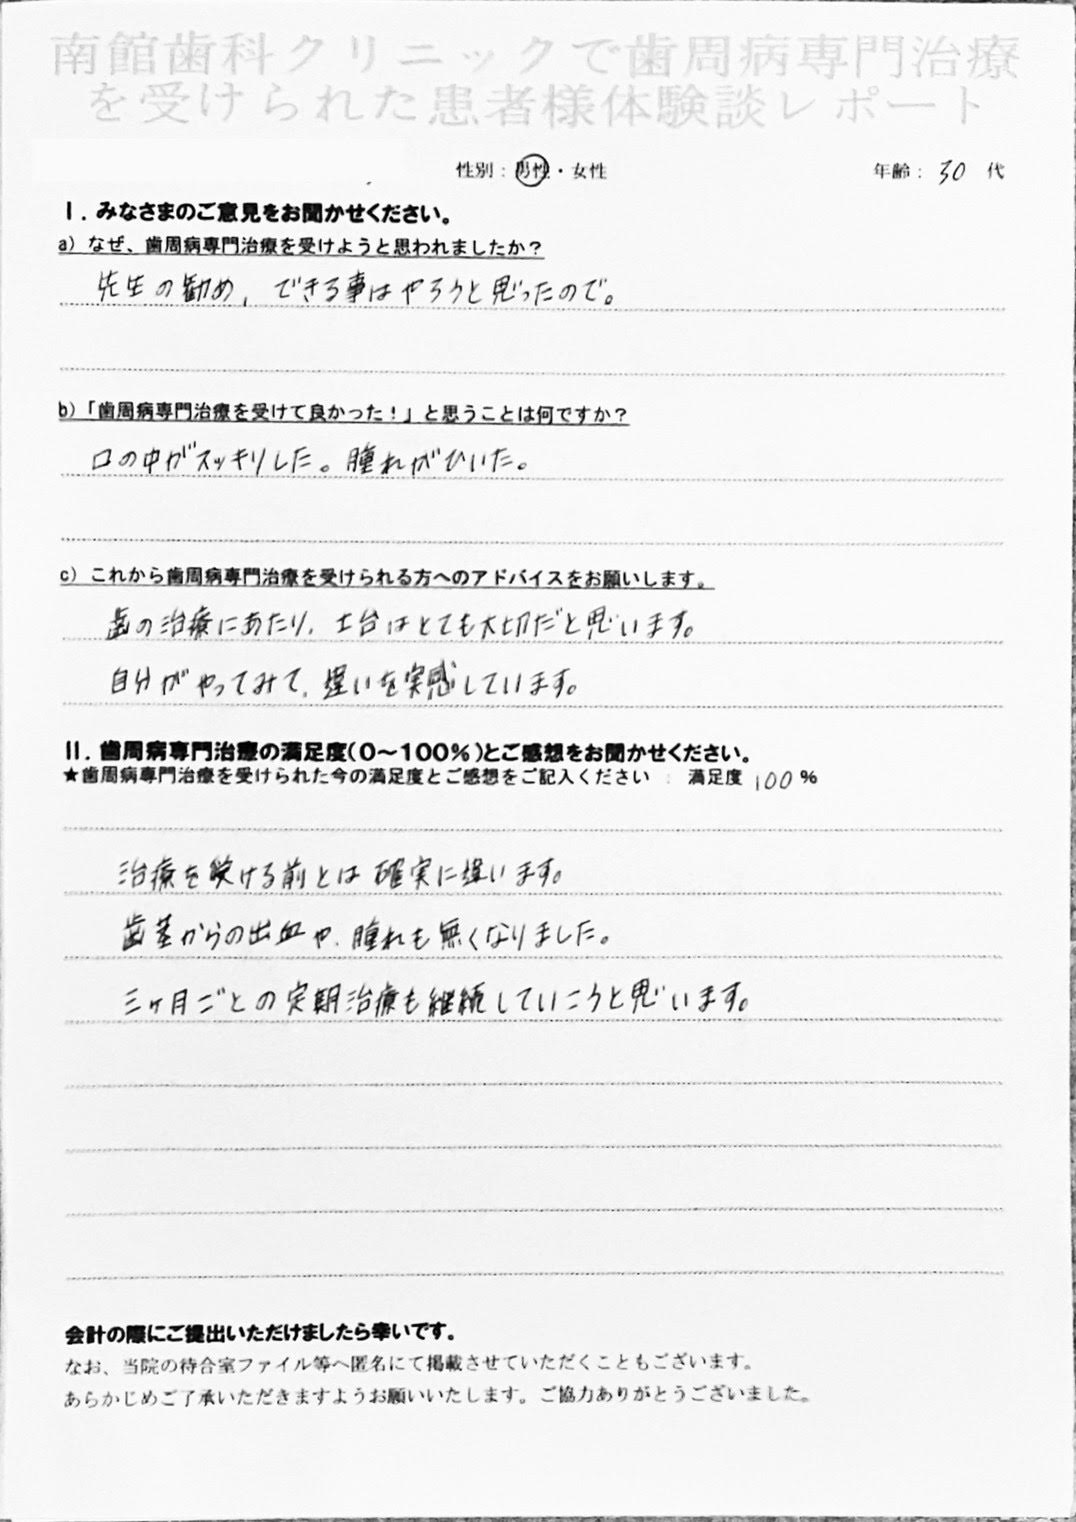 南館歯科クリニックで歯周病専門治療
を受けられた患者様体験談レポート
性別：男性・女性 年齢：30 代
Ⅰ．みなさまのご意見をお聞かせください。
a）なぜ、歯周病専門治療を受けようと思われましたか？
先生の勧め、できる事はやろうと思ったので。
b）「歯周病専門治療を受けて良かった！」と思うことは何ですか？
口の中がスッキリした。腫れがひいた。
c）これから歯周病専門治療を受けられる方へのアドバイスをお願いします。
歯の治療にあたり、土台はとても大切だと思います。
自分がやってみて、違いを実感しています。
Ⅱ．歯周病専門治療の満足度（0～100％）とご感想をお聞かせください。
★歯周病専門治療を受けられた今の満足度とご感想をご記入ください ： 満足度 100 ％
治療を受ける前とは確実に違います。
歯茎からの出血や、腫れも無くなりました。
三ヶ月ごとの定期治療も継続していこうと思います。
会計の際にご提出いただけましたら幸いです。
なお、当院の待合室ファイル等へ匿名にて掲載させていただくこともございます。
あらかじめご了承いただきますようお願いいたします。ご協力ありがとうございました。